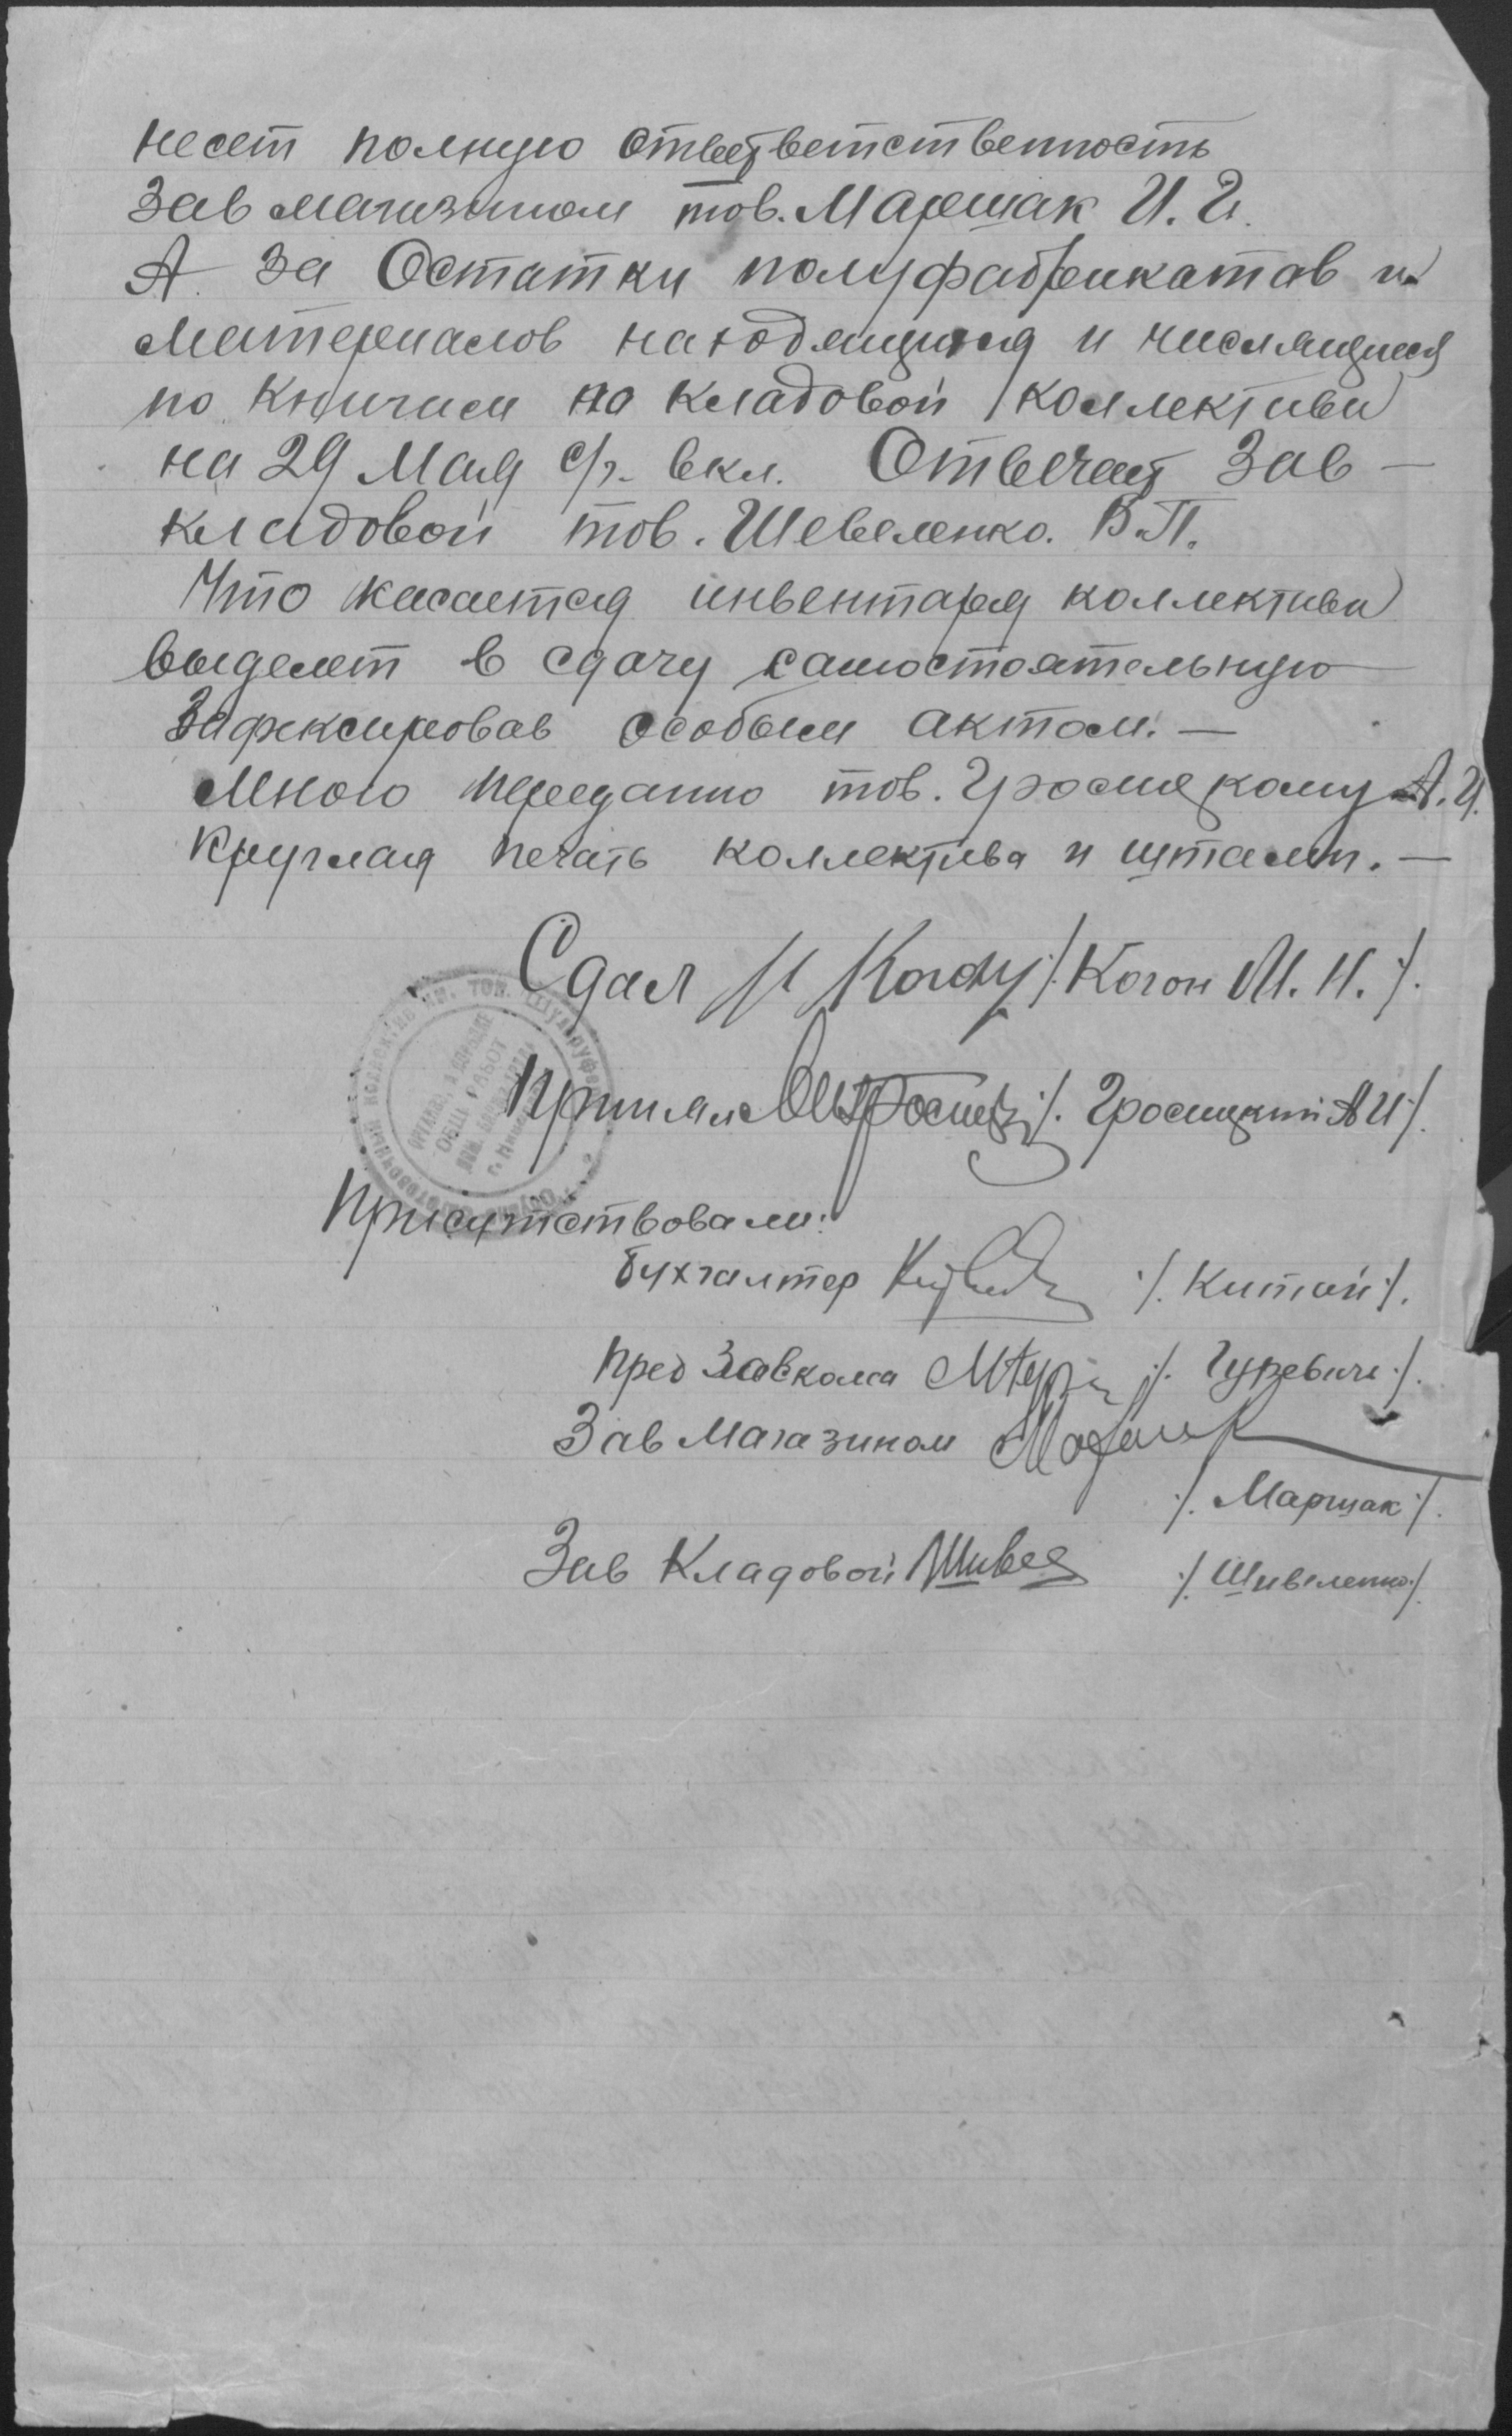 несет полную ответветственность
Зав магазином тов. Маршак И. И.
А за Остатки полуфабрикатав и
материалов находящихся и числящиеся
по Книгам по кладовой коллектива
на 29 Мая с/г. вкл. Отвечает Зав —
кладовой тов. Шевеленко. В.П.
Что касается инвентаря коллектива
выделет в сдачу самостоятельную
Зафексировав особым актом. —
Мною переданно тов. Гросицкому А. И.
Круглая печать коллектива и штамп. —
Сдал /. Когон М. Н. /.
Принял /. Гросицкий А И /.
Присутствовали:
бухгалтер /. Китай /.
пред Завкома /. Гуревич /.
Зав Магазином
/. Маршак /.
Зав Кладовой /. Шивеленко /.
ОБЩ. РАБОТ